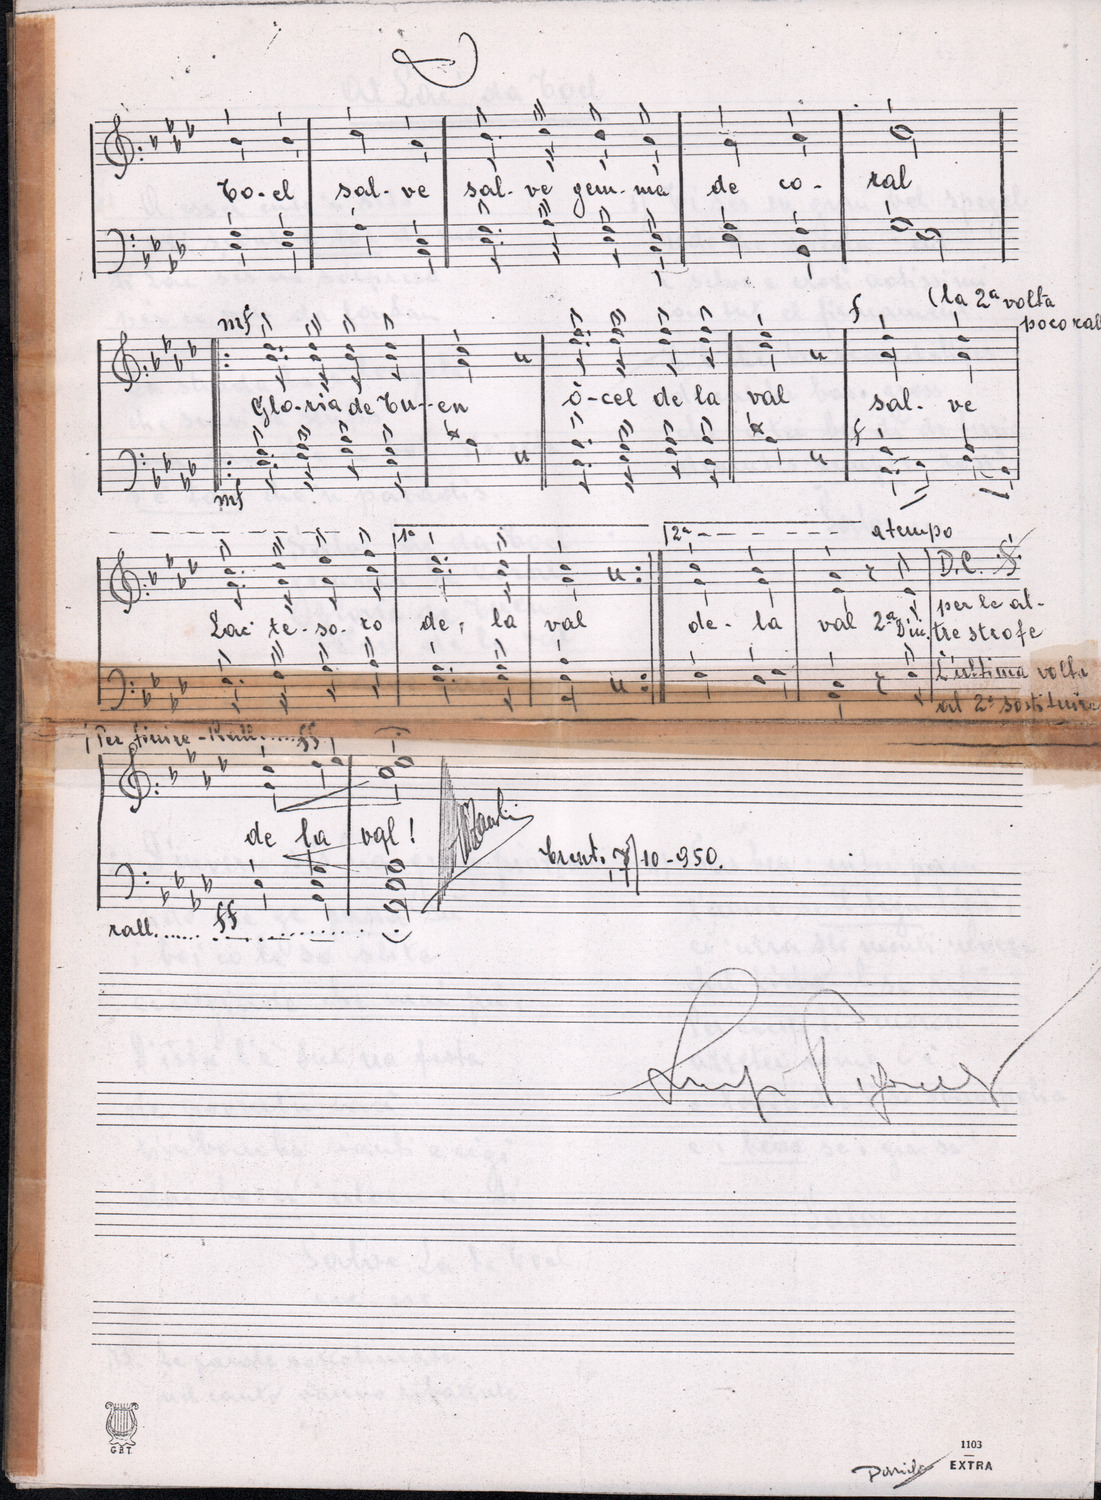 To-el sal-ve sal-ve gem-ma de co-ral
mf
f (la 2ª volta
poco rall
Glo-ria de Tu-en o-cel de la val sal-ve
f
mf
1ª 2ª a tempo
D.C.
Lac te-so-ro de; la val de-la val 2ª Din. per le al-
tre strofe
L'ultima volta
al 2ª sostituire
Per finire - Rall...... ff
de la val!
7/10-950.
rall...... ff
G.B.T.
1103
EXTRA